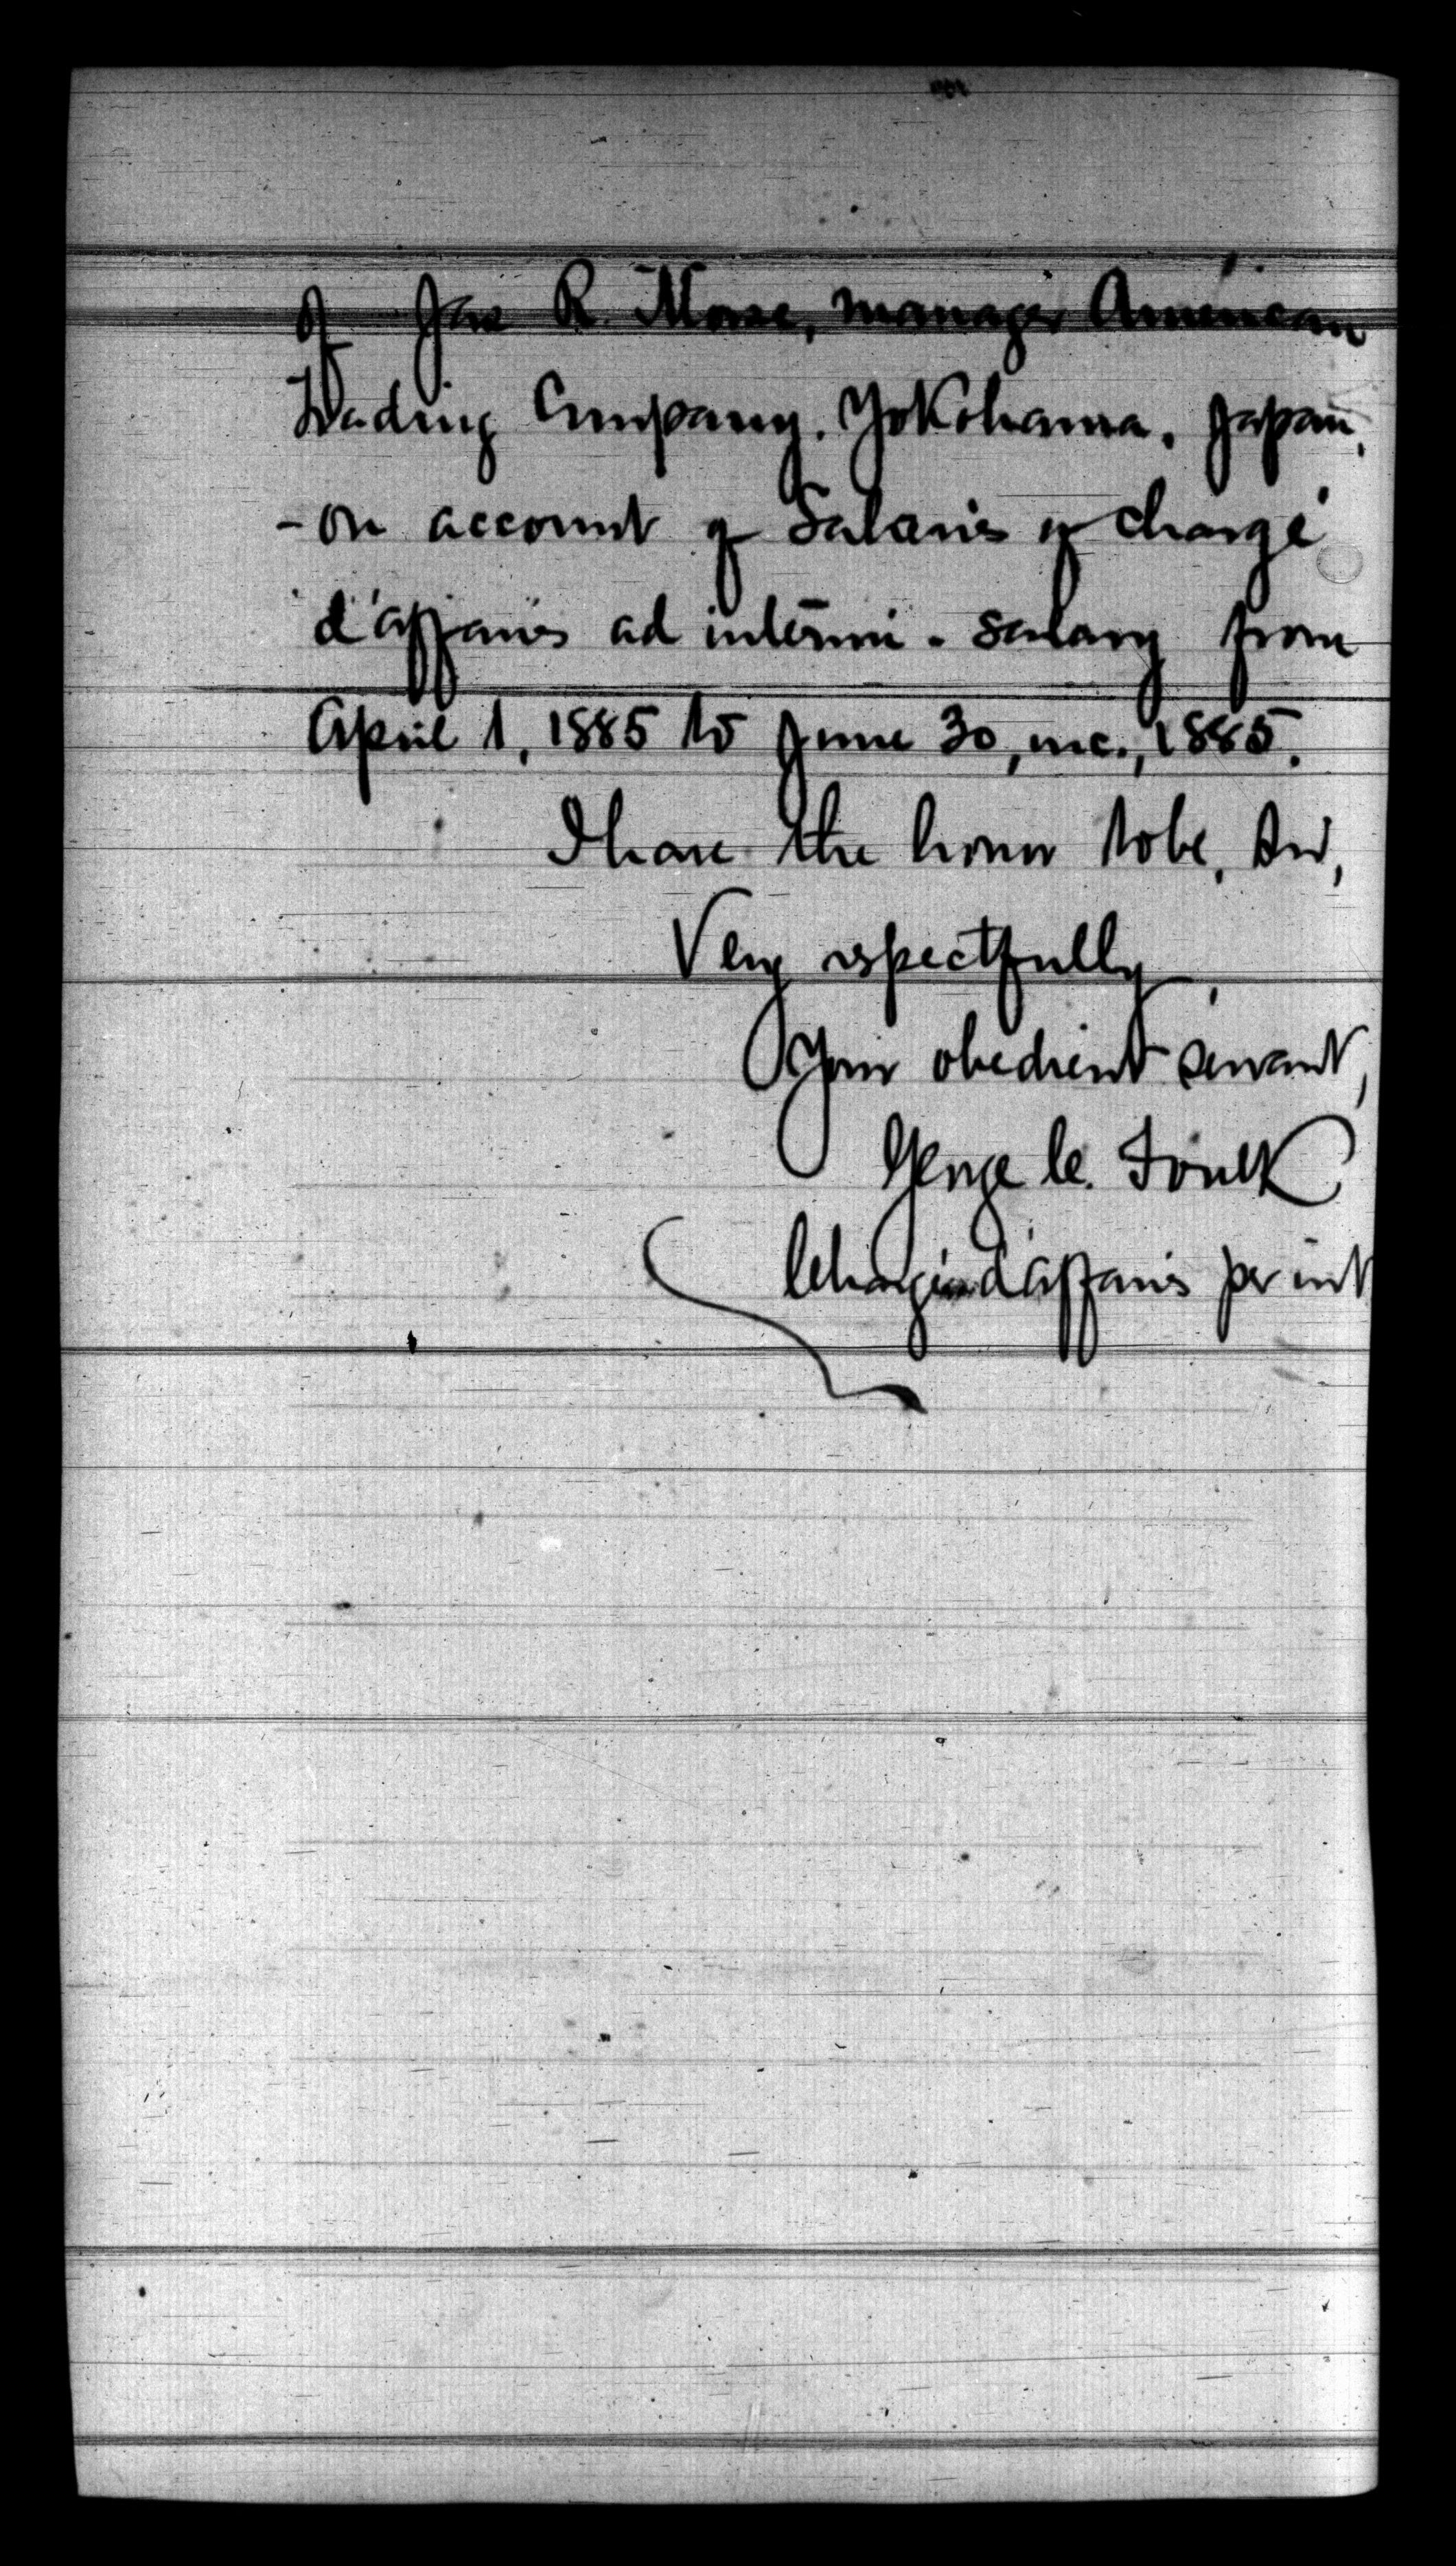 of Jas R. Morse, manager American
Trading Company, Yokohama, Japan,
- on account of Salaries of chargé
d'affaires ad interim - salary from
April 1, 1885 to June 30, inc., 1885.
I have the honor to be, Sir,
Very respectfully,
Your obedient servant,
George C. Foulk
Chargé d'affaires per int